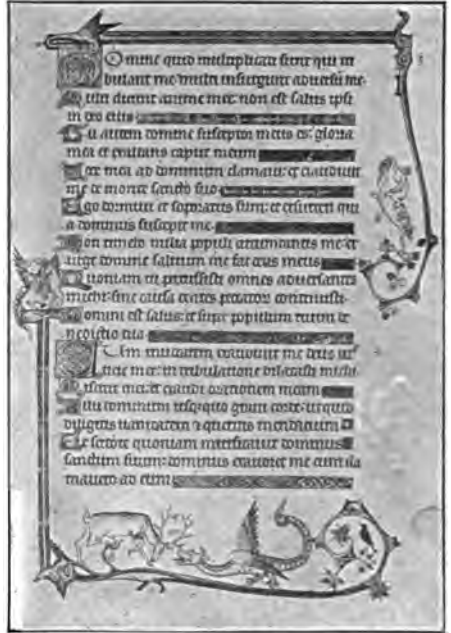 Domine quid multiplicati sunt qui tri
bulant me: multi insurgunt adversum me.
Multi dicunt anime mee: non est salus ipsi
in deo eius
Tu autem domine susceptor meus es: gloria
mea et exaltans caput meum
Voce mea ad dominum clamavi: et exaudivit
me de monte sancto suo
Ego dormivi et soporatus sum: et exsurrexi qui
a dominus suscepit me.
Non timebo milia populi circumdantis me: ex
urge domine salvum me fac deus meus
Quoniam tu percussisti omnes adversantes
michi sine causa dentes peccatorum contrivisti.
Domini est salus: et super populum tuum be
nedictio tua
Cum invocarem exaudivit me deus ius
ticie mee: in tribulatione dilatasti michi
Miserere mei: et exaudi orationem meam
Filii hominum usquequo gravi corde: ut quid
diligitis vanitatem et queritis mendacium
Et scitote quoniam mirificavit dominus
sanctum suum: dominus exaudiet me cum cla
mavero ad eum